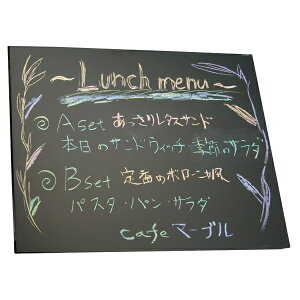 ~Lunch menu~
◎Aset あっさりレタスサンド
本日のサンドウィッチ・季節のサラダ
◎Bset 定番のボロニア風
パスタ・パン・サラダ
cafe マーブル